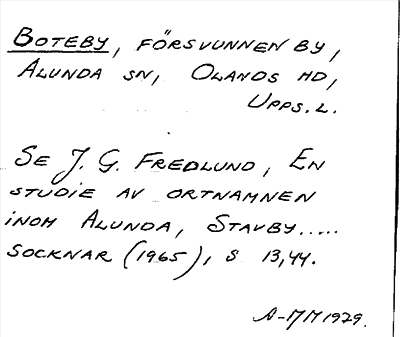 BOTEBY, FÖRSVUNNEN BY,
ALUNDA SN, OLANDS HD,
UPPS.L.
SE J. G. FREDLUND, EN
STUDIE AV ORTNAMNEN
INOM ALUNDA, STAVBY.....
SOCKNAR (1965), S 13,44.
A-MM 1979.